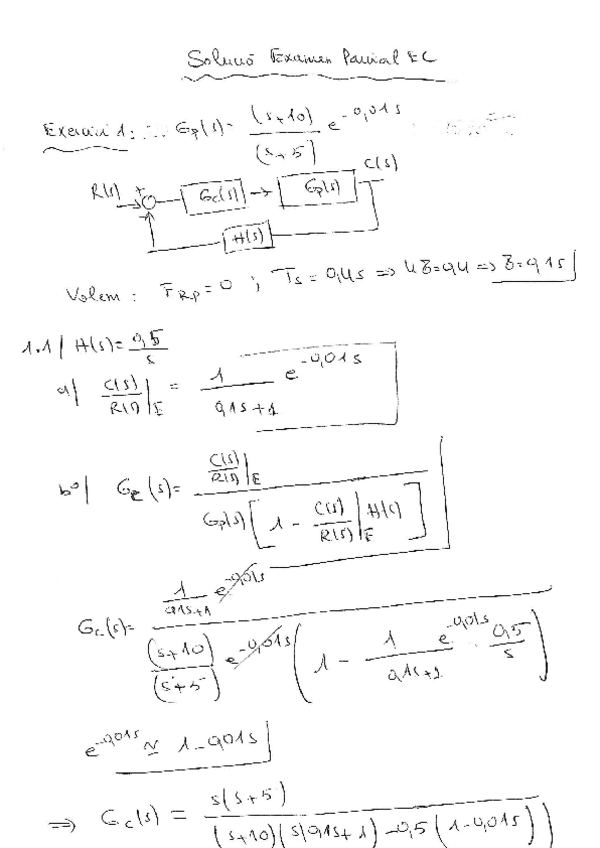 Solució Examen Parcial EC
Exercici 1: Gp(s) = (s+10)/(s+5) e^-0,01s
R(s) + Gc(s) → Gp(s) C(s)
H(s)
Volem: E_RP = 0 ; Ts = 0,4s ⇒ 4Z = 0,4 ⇒ Z = 0,1s
1.1/ H(s) = 0,5/s
a/ C(s)/R(s)|E = 1/(0,1s+1) e^-0,01s
b/ Gc(s) = (C(s)/R(s)|E) / (Gp(s)[1 - C(s)/R(s)|E H(s)])
Gc(s) = (1/(0,1s+1) e^-0,01s) / ((s+10)/(s+5) e^-0,01s (1 - 1/(0,1s+1) e^-0,01s · 0,5/s))
e^-0,01s ≈ 1-0,01s
⇒ Gc(s) = s(s+5) / ((s+10)(s(0,1s+1) - 0,5(1-0,01s)))